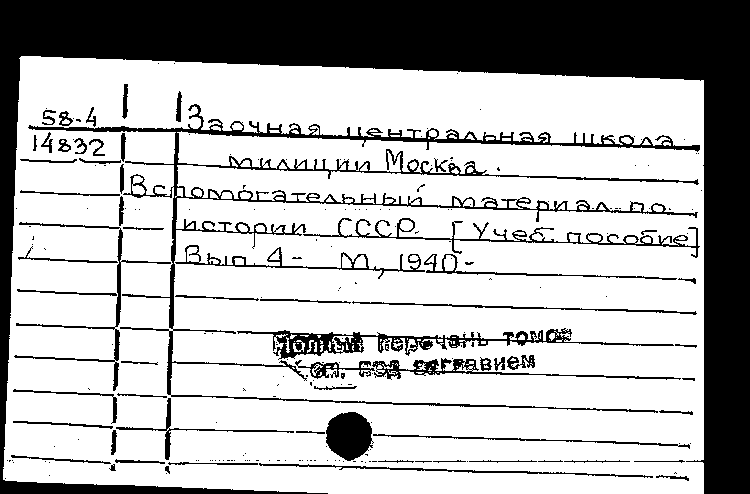 58-4
14832
Заочная центральная школа
милиции Москва.
Вспомогательный материал по
истории СССР. [Учеб. пособие]
Вып. 4- М., 1940-
Полный перечень томов
см. под заглавием